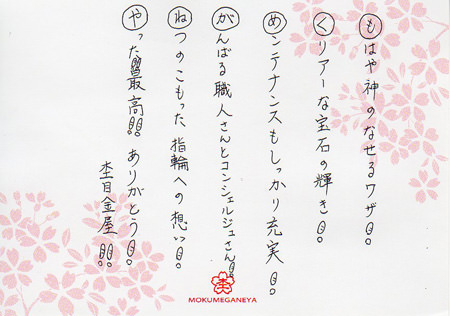 もはや神のなせるワザ!
クリアーな宝石の輝き!
めンテナンスもしっかり充実!
がんばる職人さんとコンシェルジュさん!
ねつのこもった指輪への想い!
やった最高!! ありがとう!
杢目金屋!!
MOKUMEGANEYA